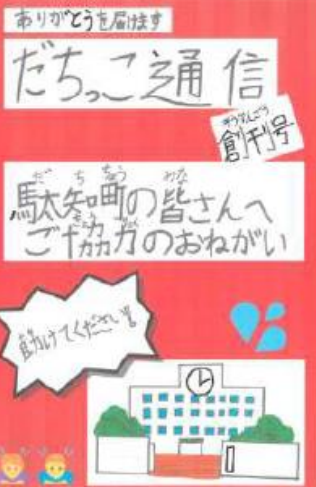 ありがとうを届けます
だちっこ通信
そうかんごう
創刊号
だちちょう みな
駄知町の皆さんへ
ご協力のおねがい
助けてください!!